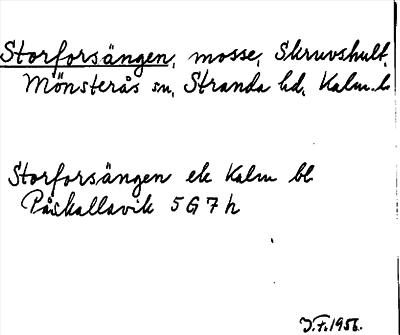 Storforsängen, mosse, Skruvshult,
Mönsterås sn, Stranda hd, Kalm. l.
Storforsängen ek Kalm bl
Påskallavik 5 G 7 h
J.F. 1956.